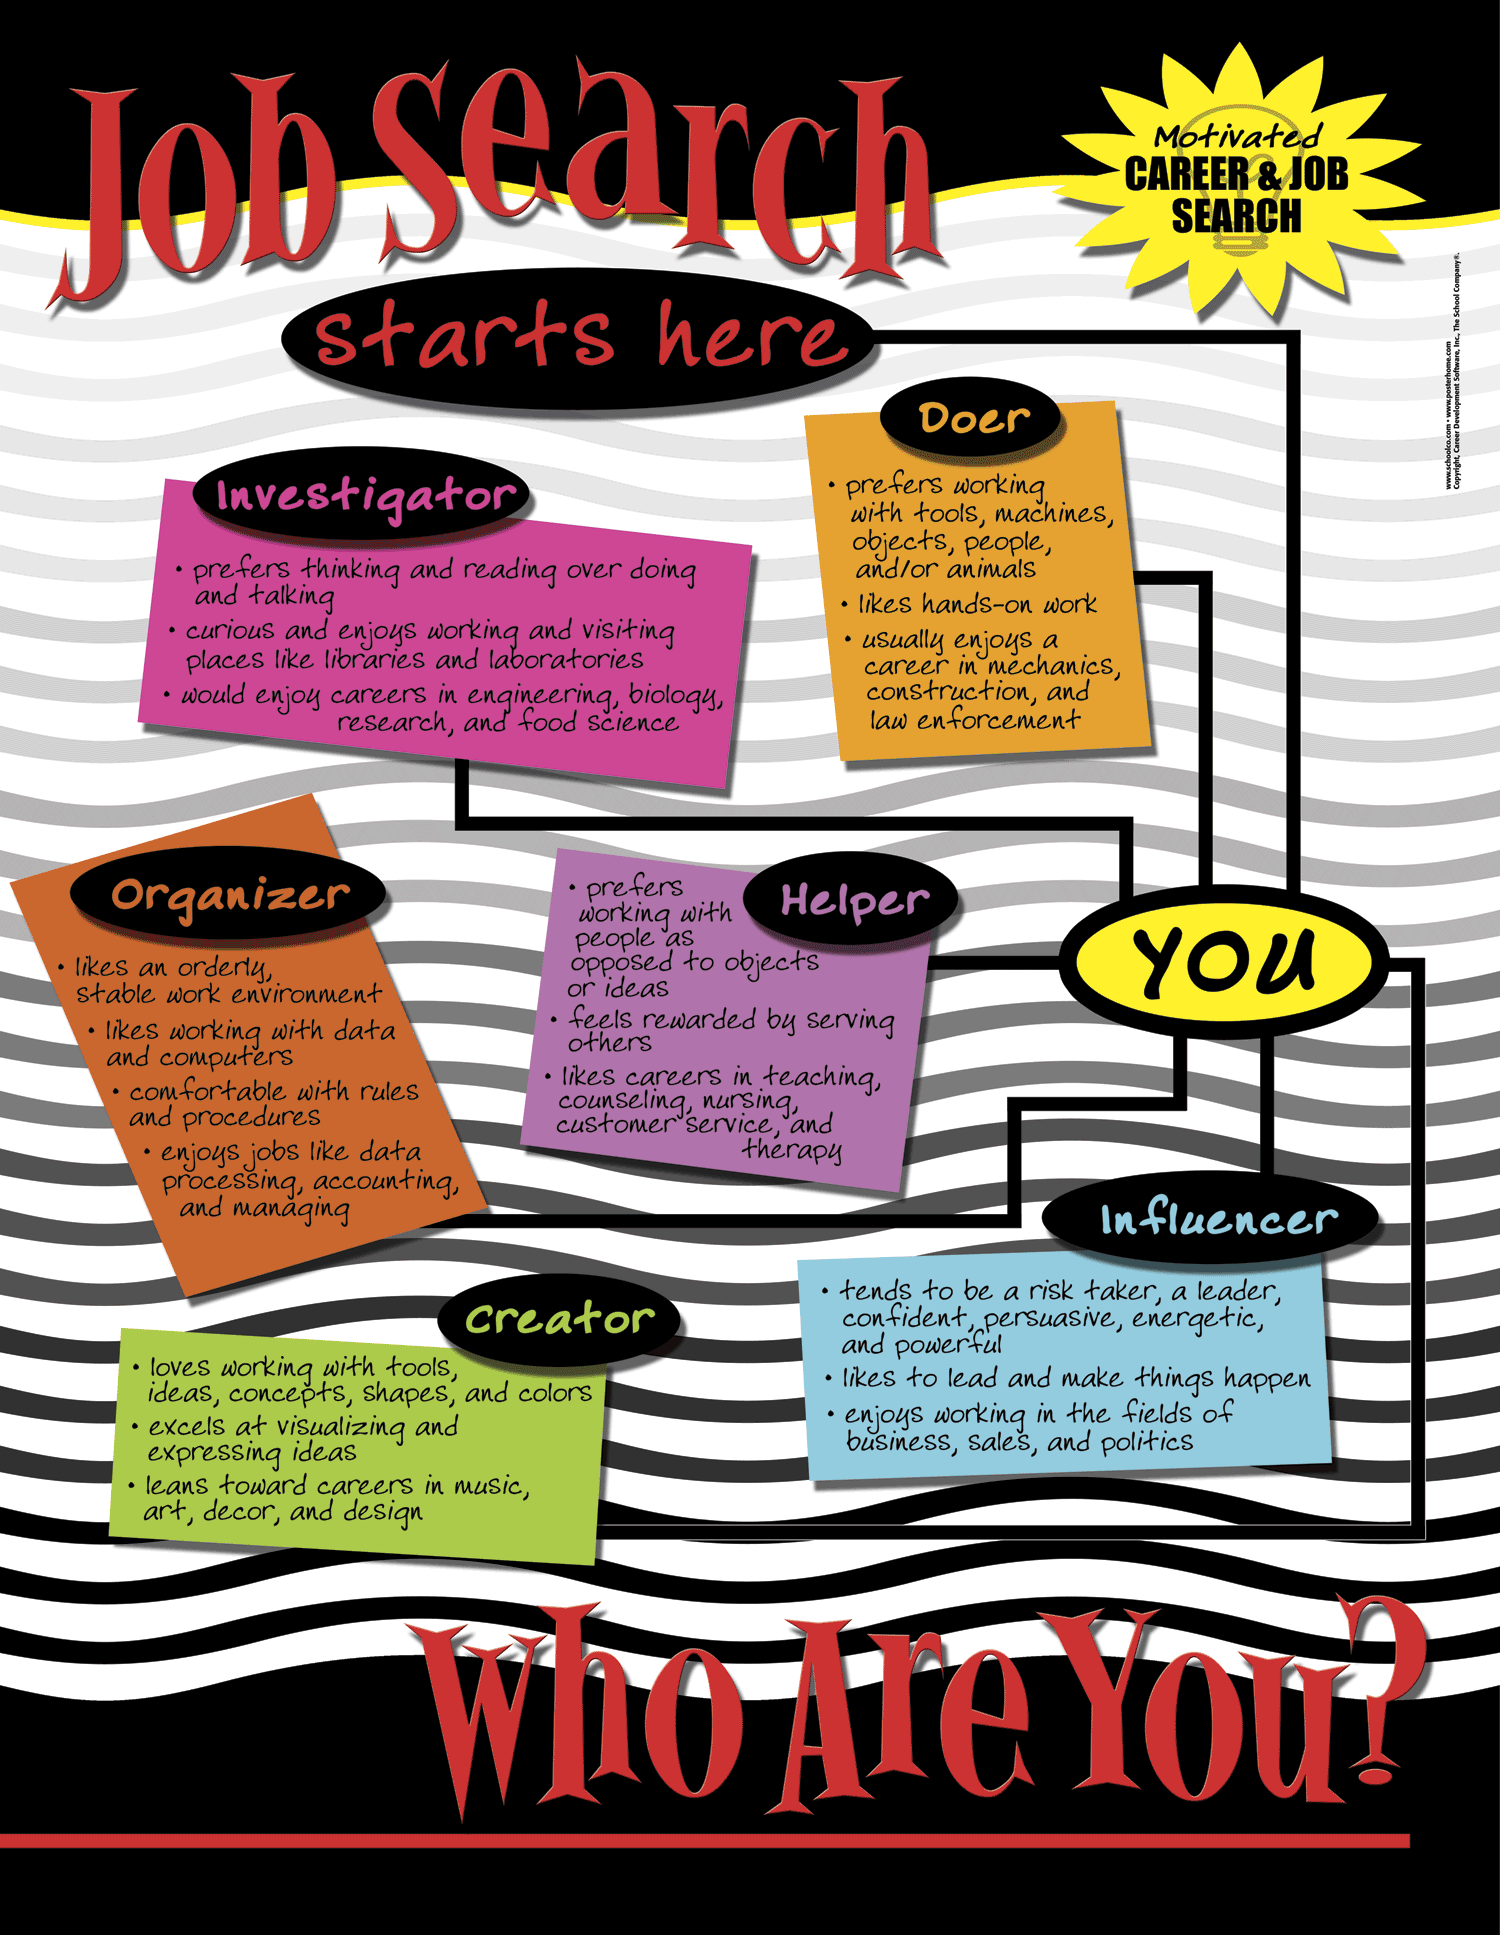 Job Search
starts here
Motivated
CAREER & JOB
SEARCH
www.schoolco.com • www.posterhome.com
Copyright, Career Development Software, Inc., The School Company®.
Doer
• prefers working
with tools, machines,
objects, people,
and/or animals
• likes hands-on work
• usually enjoys a
career in mechanics,
construction, and
law enforcement
Investigator
• prefers thinking and reading over doing
and talking
• curious and enjoys working and visiting
places like libraries and laboratories
• would enjoy careers in engineering, biology,
research, and food science
Organizer
• likes an orderly,
stable work environment
• likes working with data
and computers
• comfortable with rules
and procedures
• enjoys jobs like data
processing, accounting,
and managing
Helper
• prefers
working with
people as
opposed to objects
or ideas
• feels rewarded by serving
others
• likes careers in teaching,
counseling, nursing,
customer service, and
therapy
YOU
Influencer
• tends to be a risk taker, a leader,
confident, persuasive, energetic,
and powerful
• likes to lead and make things happen
• enjoys working in the fields of
business, sales, and politics
Creator
• loves working with tools,
ideas, concepts, shapes, and colors
• excels at visualizing and
expressing ideas
• leans toward careers in music,
art, decor, and design
Who Are You?